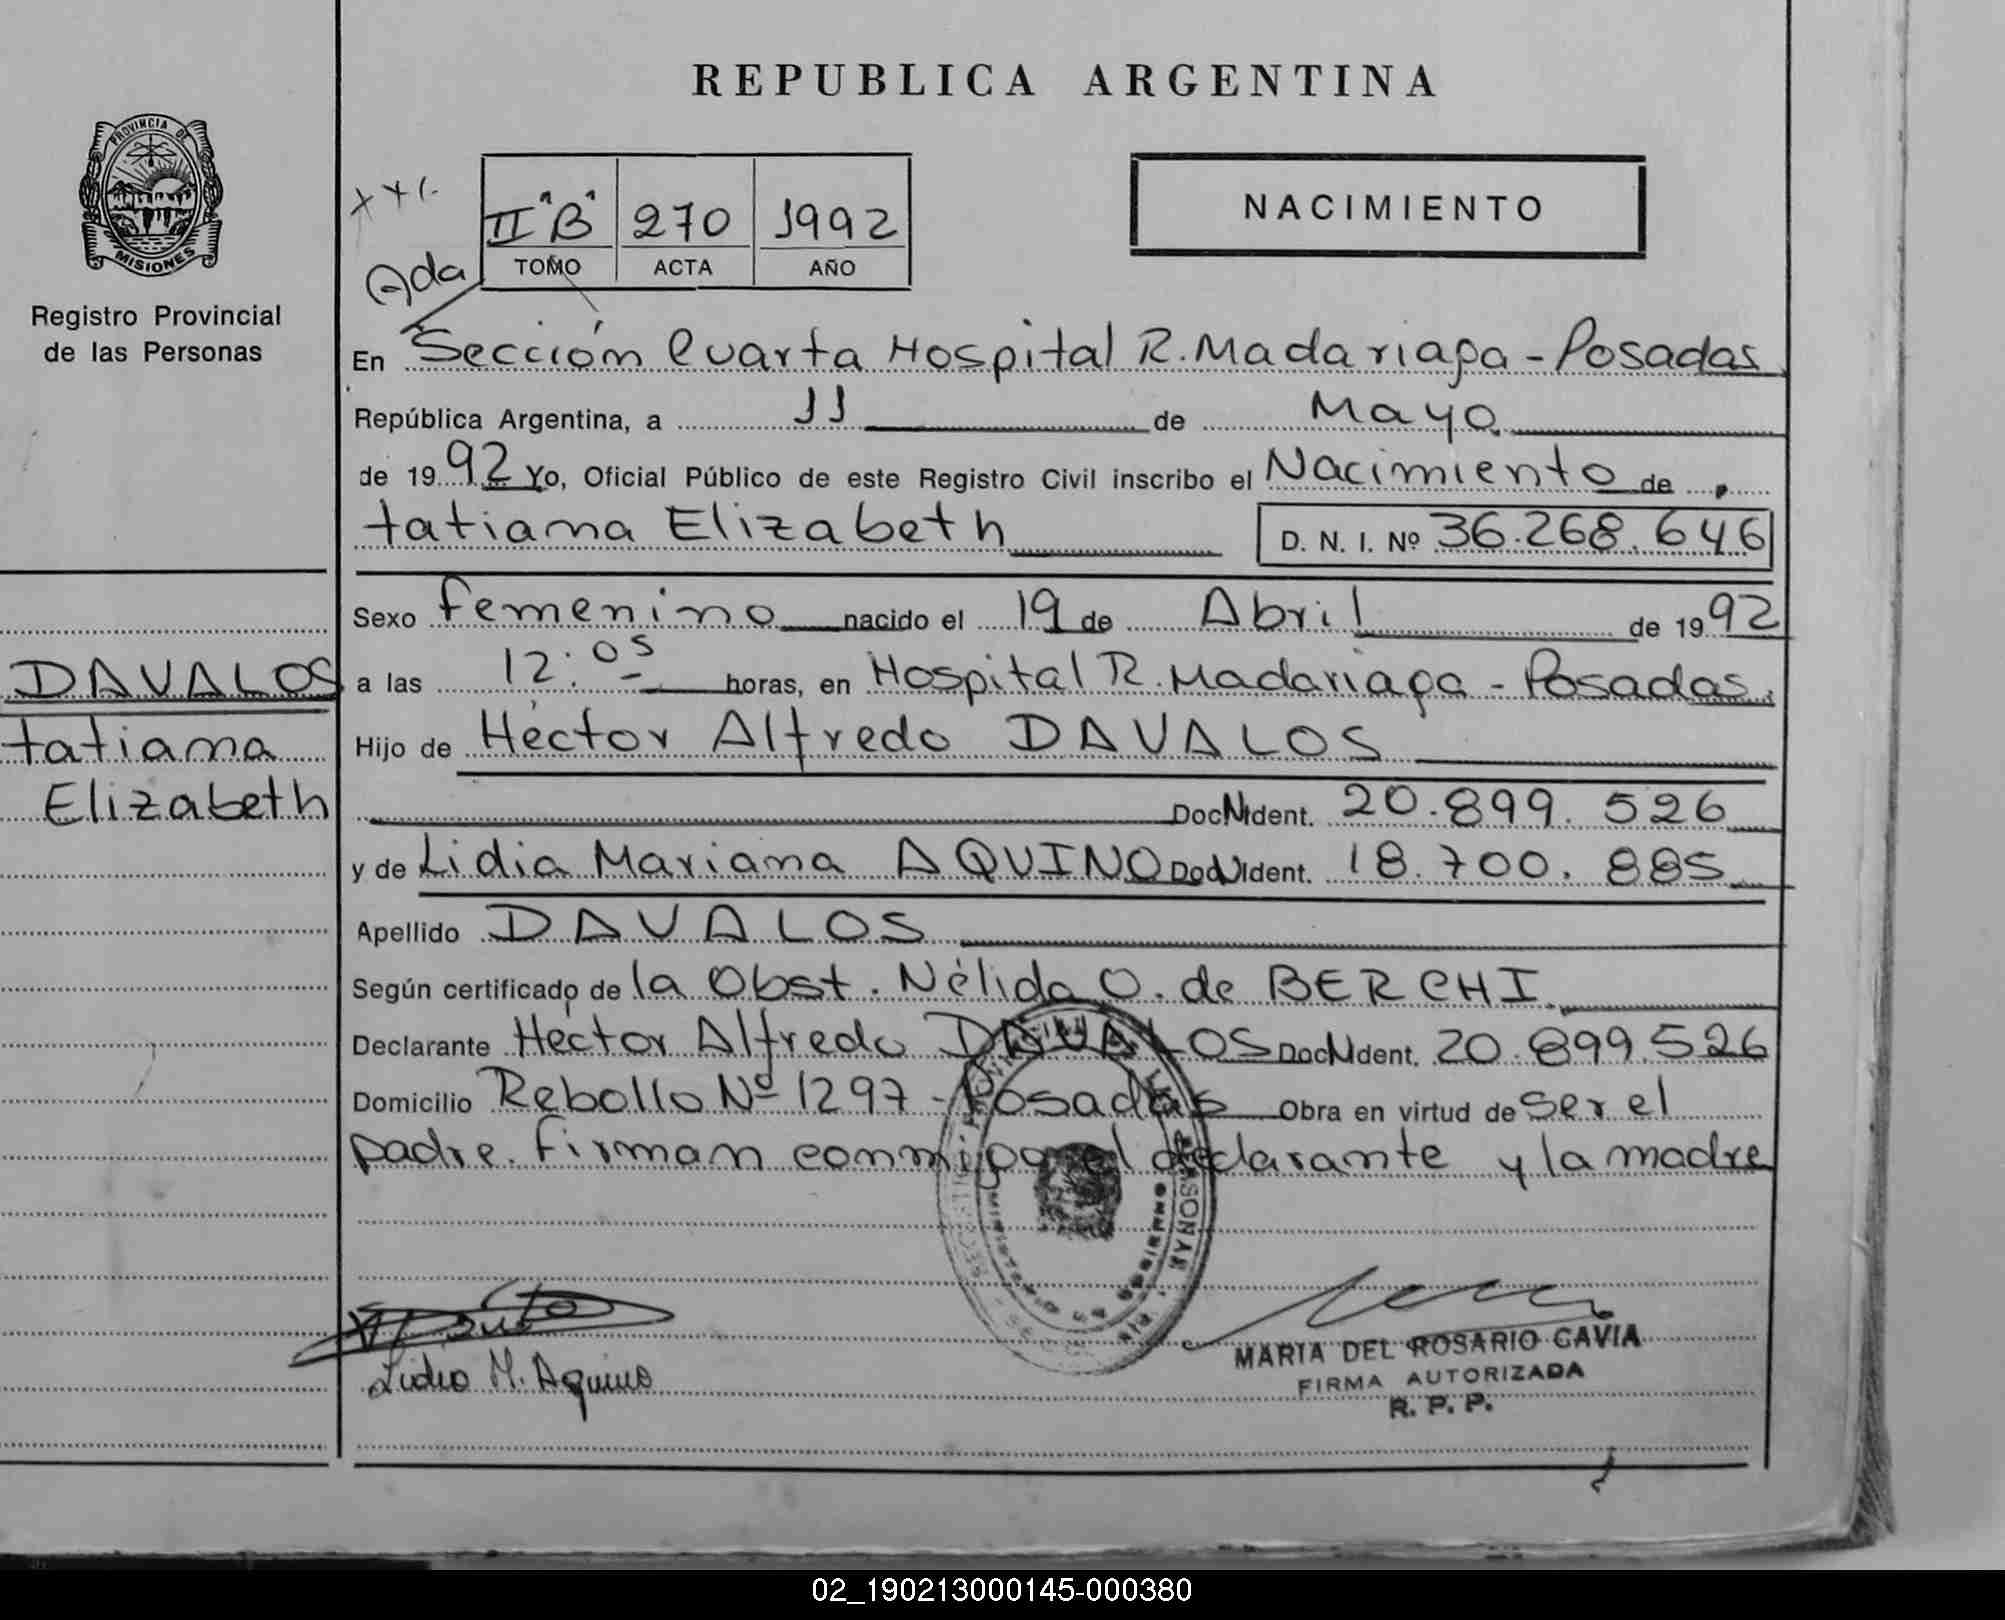 REPUBLICA ARGENTINA
PROVINCIA DE
MISIONES
Registro Provincial
de las Personas
II "B" 270 1992
TOMO ACTA AÑO
NACIMIENTO
Ada
En Sección Cuarta Hospital R. Madariaga - Posadas
República Argentina, a 11 de Mayo
de 1992 Yo, Oficial Público de este Registro Civil inscribo el Nacimiento de
tatiana Elizabeth D. N. I. Nº 36.268.646
Sexo femenino nacido el 19 de Abril de 1992
a las 12:05 horas, en Hospital R. Madariaga - Posadas.
Hijo de Héctor Alfredo DAVALOS
Doc N Ident. 20.899.526
y de Lidia Mariana AQUINO Doc N Ident. 18.700.885
Apellido DAVALOS
Según certificado de la Obst. Nélida O. de BERCHI.
Declarante Héctor Alfredo DAVALOS Doc N Ident. 20.899.526
Domicilio Rebollo Nº 1297 - Posadas Obra en virtud de ser el
padre. firman conmigo el declarante y la madre
DAVALOS
tatiana
Elizabeth
Lidia M. Aquino
MARIA DEL ROSARIO CAVIA
FIRMA AUTORIZADA
R. P. P.
02_190213000145-000380